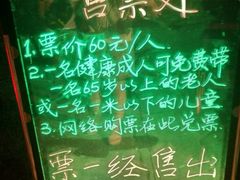 售票处
1.票价60元/人.
2.一名健康成人可免费带
一名65岁以上的老人
或一名一米以下的儿童
3.网络购票在此兑票.
票一经售出